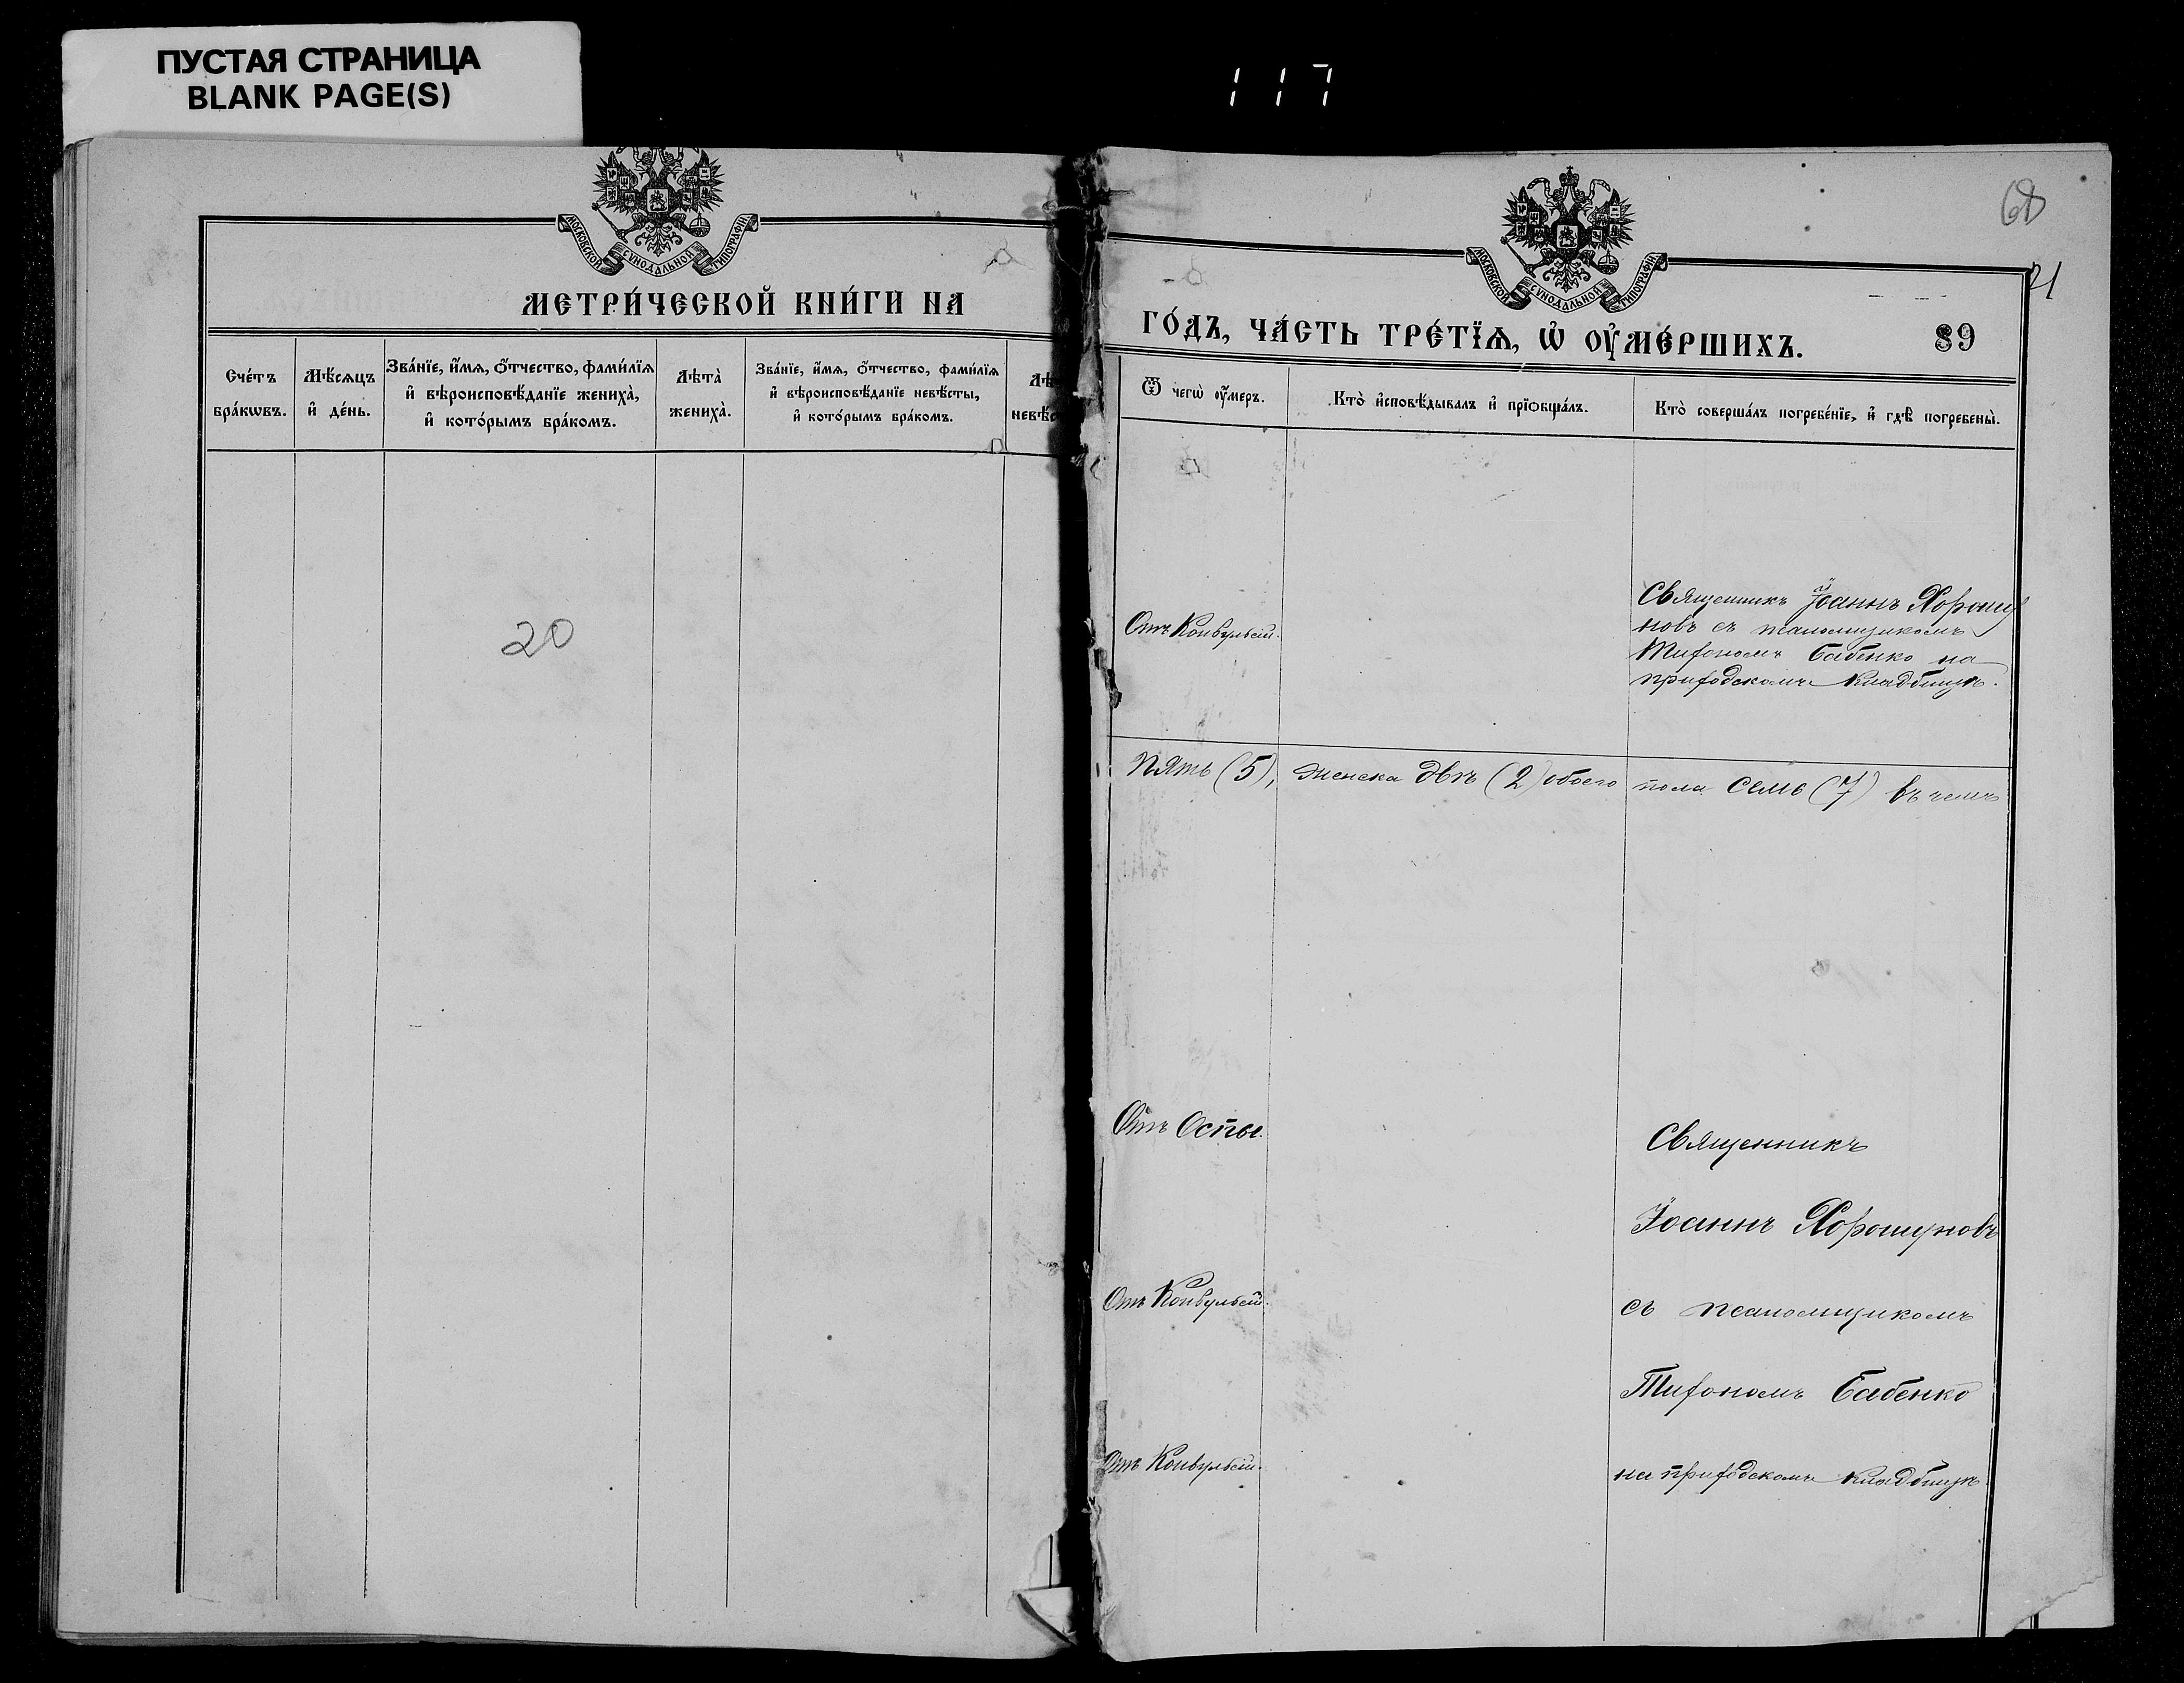 ПУСТАЯ СТРАНИЦА
BLANK PAGE(S)
117
МОСКОВСКОЙ СѴНОДАЛЬНОЙ ТИПОГРАФІИ
МЕТРИ́ЧЕСКОЙ КНИ́ГИ НА
Сче́тъ бра́кωвъ.
Мѣ́сяцъ и҆ де́нь.
Зва́нїе, и҆́мѧ, ѻ҆́тчество, фами́лїѧ
и҆ вѣроисповѣ́данїе жениха̀,
и҆ кото́рымъ бра́комъ.
Лѣта̀ жениха̀.
Зва́нїе, и҆́мѧ, ѻ҆́тчество, фами́лїѧ
и҆ вѣроисповѣ́данїе невѣ́сты,
и҆ кото́рымъ бра́комъ.
20
68
МОСКОВСКОЙ СѴНОДАЛЬНОЙ ТИПОГРАФІИ
21
ГО́ДЪ, ЧА́СТЬ ТРЕ́ТЇѦ, Ѡ҆ ОУ҆МЕ́РШИХЪ.
89
Ѿ чегѡ̀ оу҆́меръ.
Кто̀ и҆сповѣ́дывалъ и҆ прїѻбща́лъ.
Кто̀ соверша́лъ погребе́нїе, и҆ гдѣ̀ погребены̀.
Священникъ Іоаннъ Хорошу
Отъ Конвульсій.
новъ съ псаломщикомъ
Тихономъ Бабенко на
приходскомъ кладбищѣ.
Пять (5), женска двѣ (2) обоего пола семь (7) въ чемъ
Отъ Оспы.
Священникъ
Іоаннъ Хорошуновъ
Отъ Конвульсій.
съ псаломщикомъ
Тихономъ Бабенко
Отъ Конвульсій.
на приходскомъ кладбищѣ.